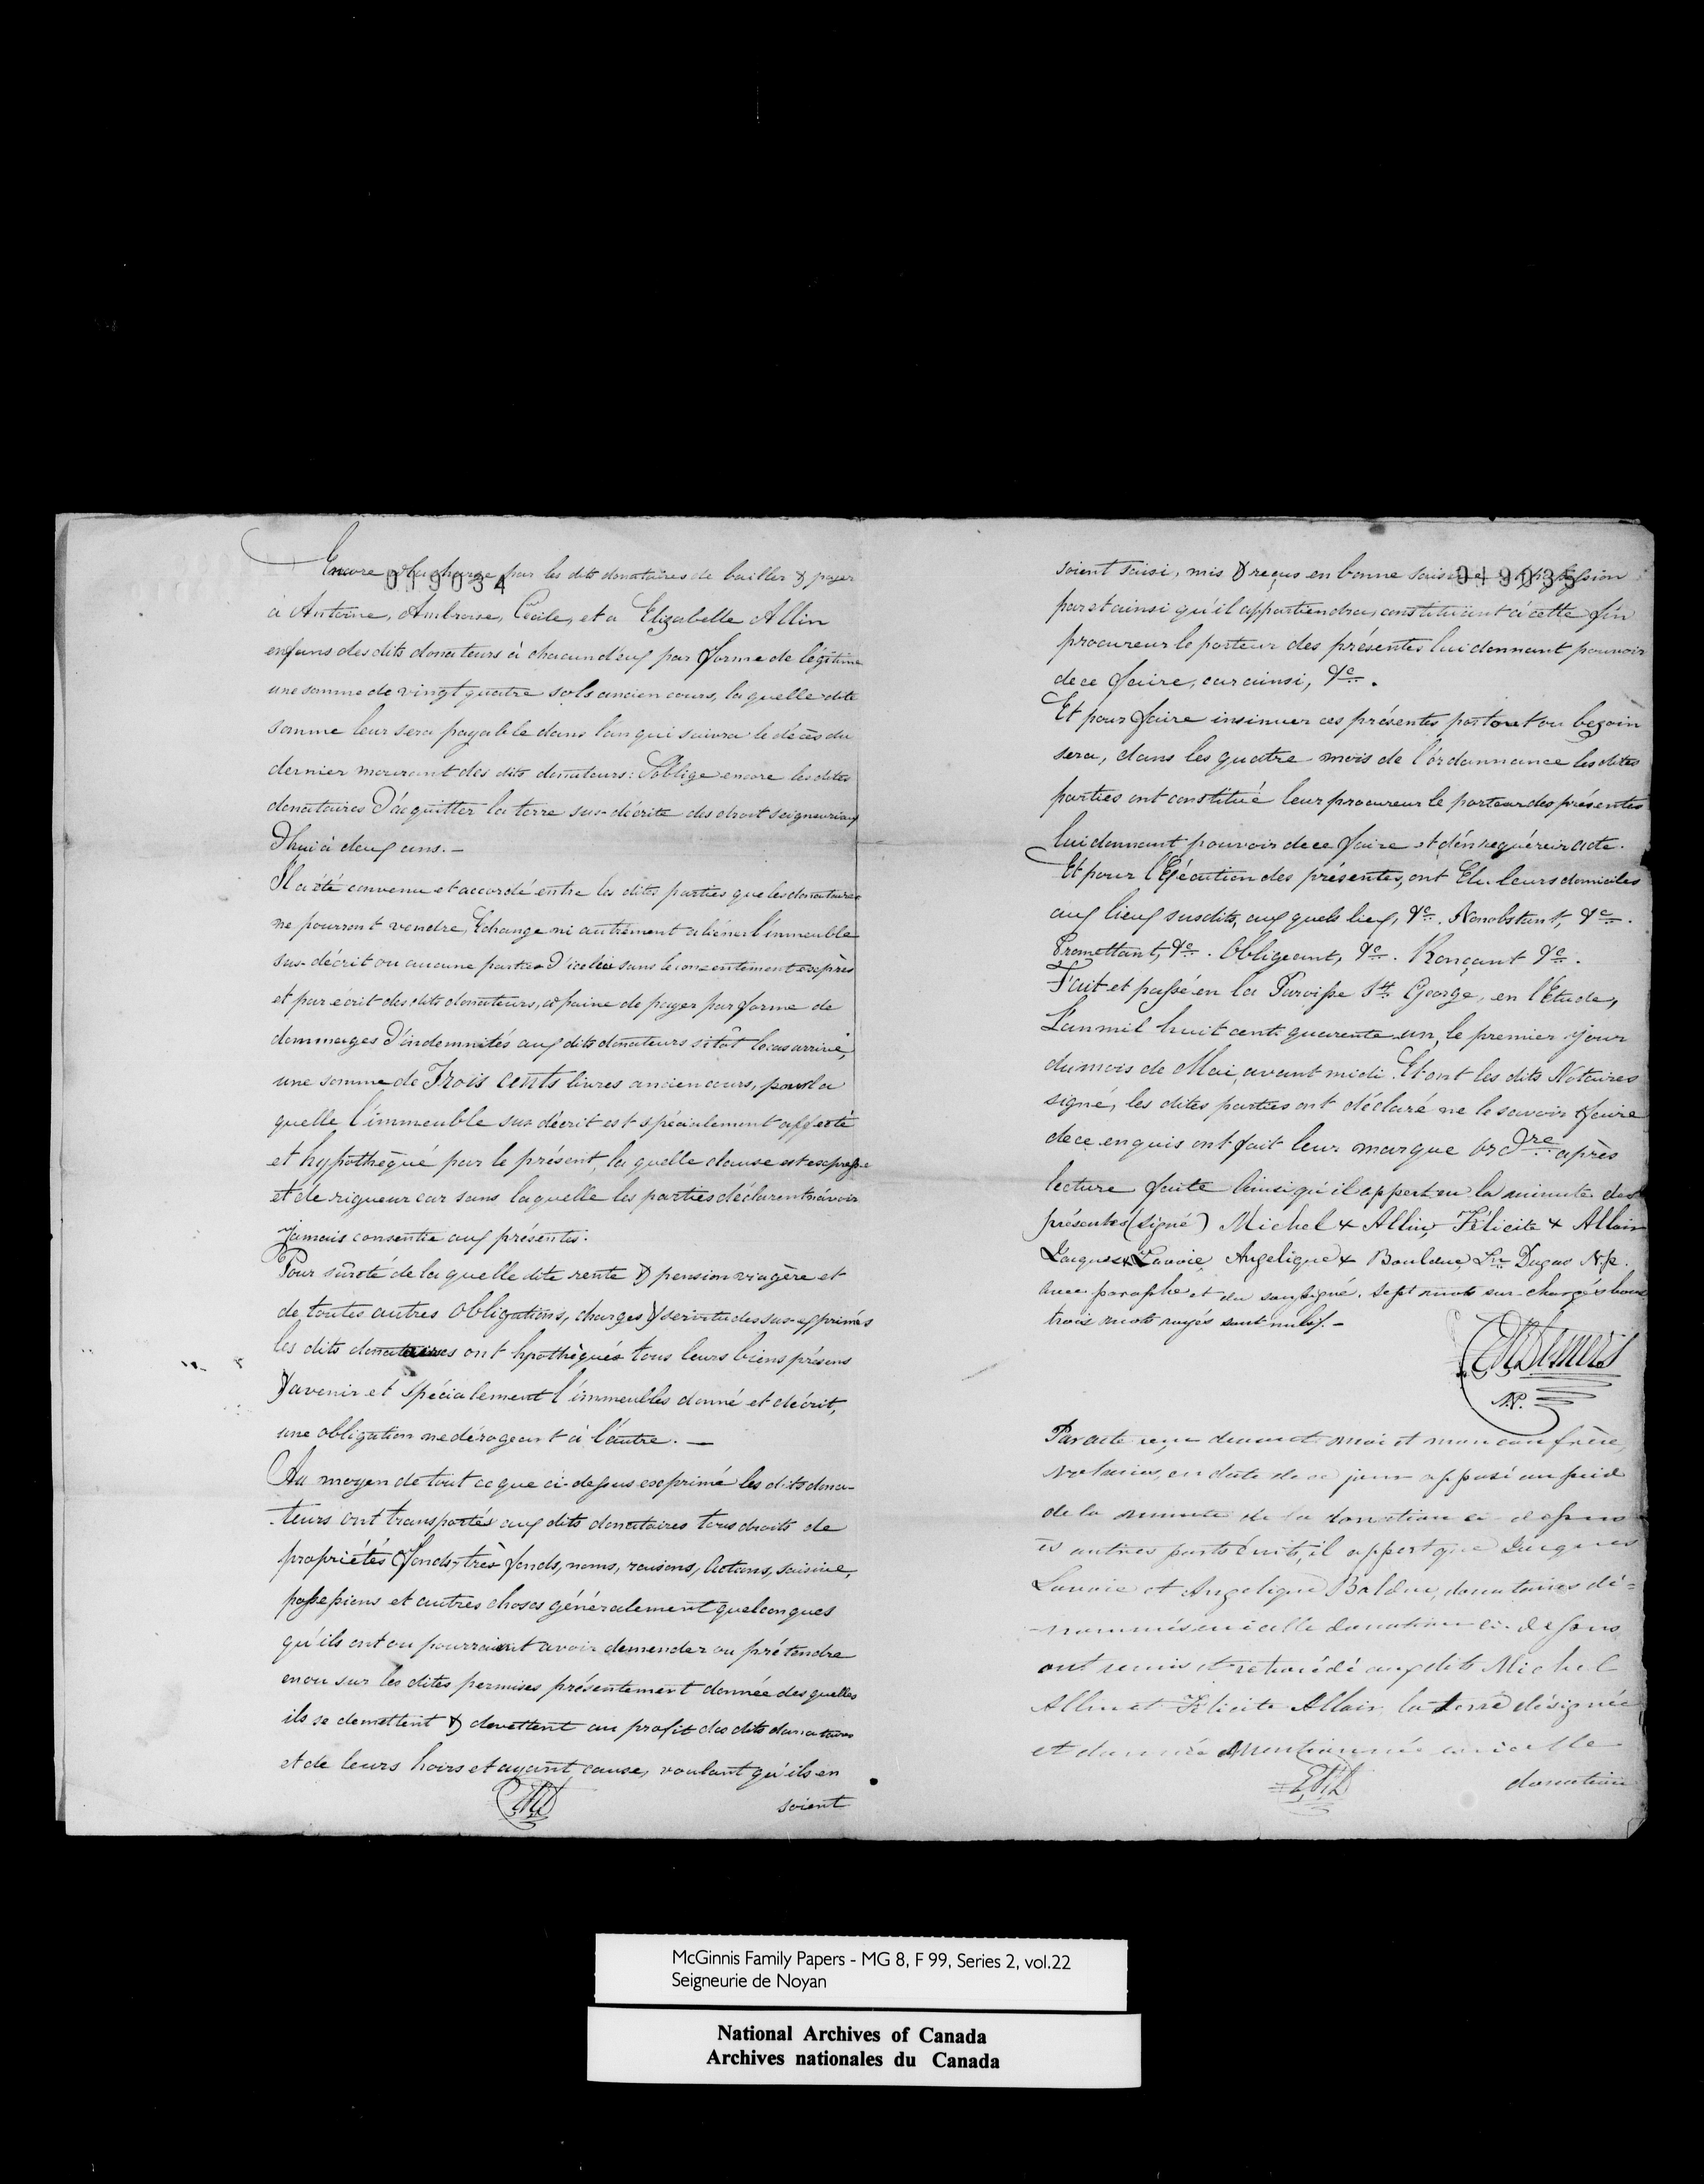 019034
Encore à la charge par les dits donataires de bailler & payer
à Antoine, Ambroise, Cécile, et a Elizabelle Allin
enfans des dits donateurs à chacun d'eux par forme de légitime
une somme de vingt quatre sols ancien cours, la quelle dite
somme leur sera payable dans l'an qui suivra le décès du
dernier mourant des dits donateurs: S'oblige encore les dites
donataires d'acquitter la terre sus-décrite des droit seigneuriaux
d'hui à deux ans. -
Il a été convenu et accordé entre les dites parties que les donataires
ne pourront vendre, Echange ni autrement aliéner l'immeuble
sus-décrit ou aucune partie d'icelui sans le consentement exprès
et par écrit des dits donateurs, a paine de payer par forme de
dommages d'indemnités aux dits donateurs sitôt le cas arrivé,
une somme de Trois cents livres ancien cours, pour la
quelle l'immeuble sus décrit est spécialement affecté
et hypothèqué par le présent, la quelle clause est expresse
et de rigueur car sans laquelle les parties déclarent n'avoir
jamais consentie aux présentes.
Pour sûreté de la quelle dite rente & pension viagère et
de toutes autres obligations, charges & servitudes sus-exprimés
les dits donataires ont hpothèqués tous leurs biens présens
& avenir et spécialement l'immeubles donné et décrit,
une obligation ne dérogeant à l'autre. —
Au moyen de tout ce que ci-dessus exprimé les dits dona-
-teurs ont transportés aux dits donataires tous droits de
propriétés fonds, très fonds, noms, raisons, actions, saisine,
possessions et autres choses généralement quelconques
qu'ils ont ou pourraient avoir demender ou prétendre
en ou sur les dites permises présentement donnée des quelles
ils se demettent & devettent au profit des dits donataires
et de leurs hoirs et ayant cause, voulant qu'ils en
soient
019035
soient saisi, mis & reçus en bonne saisine possession
par et ainsi qu'il appartiendra, constituant à cette fin
procureur le porteur des présentes lui donnant pouvoir
de ce faire, car ainsi, &c.
Et pour faire insinuer ces présentes partout ou bezoin
sera, dans les quatre mois de l'ordonnance les dites
parties ont constitué leur procureur le porteur des présentes
lui donnant pouvoir de ce faire et d'en requérir acte.
Et pour l'Exécution des présentes, ont Elu leurs domiciles
aux lieux susdits, aux quels lieux, &c. Nonobstant, &c.
Promettant, &c. Obligeant, &c. Renonçant &c.
Fait et passé en la Paroisse St. George, en l'Etude,
L'an mil huit cent quarente un, le premier jour
du mois de Mai, avant midi. Et ont les dits Notaires
signé, les dites parties ont déclaré ne le savoir faire
de ce enquis ont fait leur marque ordre après
lecture faite ainsi qu'il appert en la minute des
présentes (signé) Michel + Allin, Félicite + Allain
Jacques + Lavoie Angelique + Bouldue Ln. Dugas N.p.
avec paraphe et du soussigné. Sept mots sur-chargés bons
trois mots rayés sont nuls. -
Demers
N.P.
Par acte reçu devant moi et mon confrère,
Notaires, en date de ce jour apposé au pied
de la minute de la donation ci-dessus
és autres parts écrits, il appert que Jacques
Lavoie et Angelique Baldue, donataires dé=
nommés en icelle donation ci-dessus
ont remis et retrocédé aux dits Michel
Allin et Félicite Allain, la terre désignée
et donnée & mentionnée en icelle
donation
McGinnis Family Papers - MG 8, F 99, Series 2, vol.22
Seigneurie de Noyan
National Archives of Canada
Archives nationales du Canada